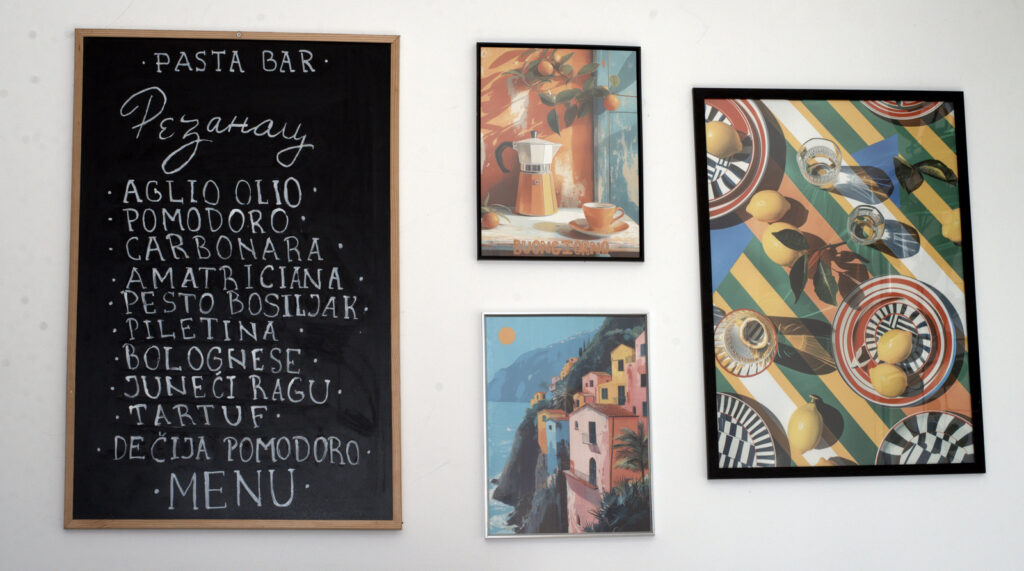 · PASTA BAR ·
Резанац
· AGLIO OLIO ·
· POMODORO ·
· CARBONARA ·
· AMATRICIANA ·
· PESTO BOSILJAK ·
· PILETINA ·
· BOLOGNESE ·
· JUNEĆI RAGU ·
· TARTUF ·
· DEČIJA POMODORO ·
· MENU ·